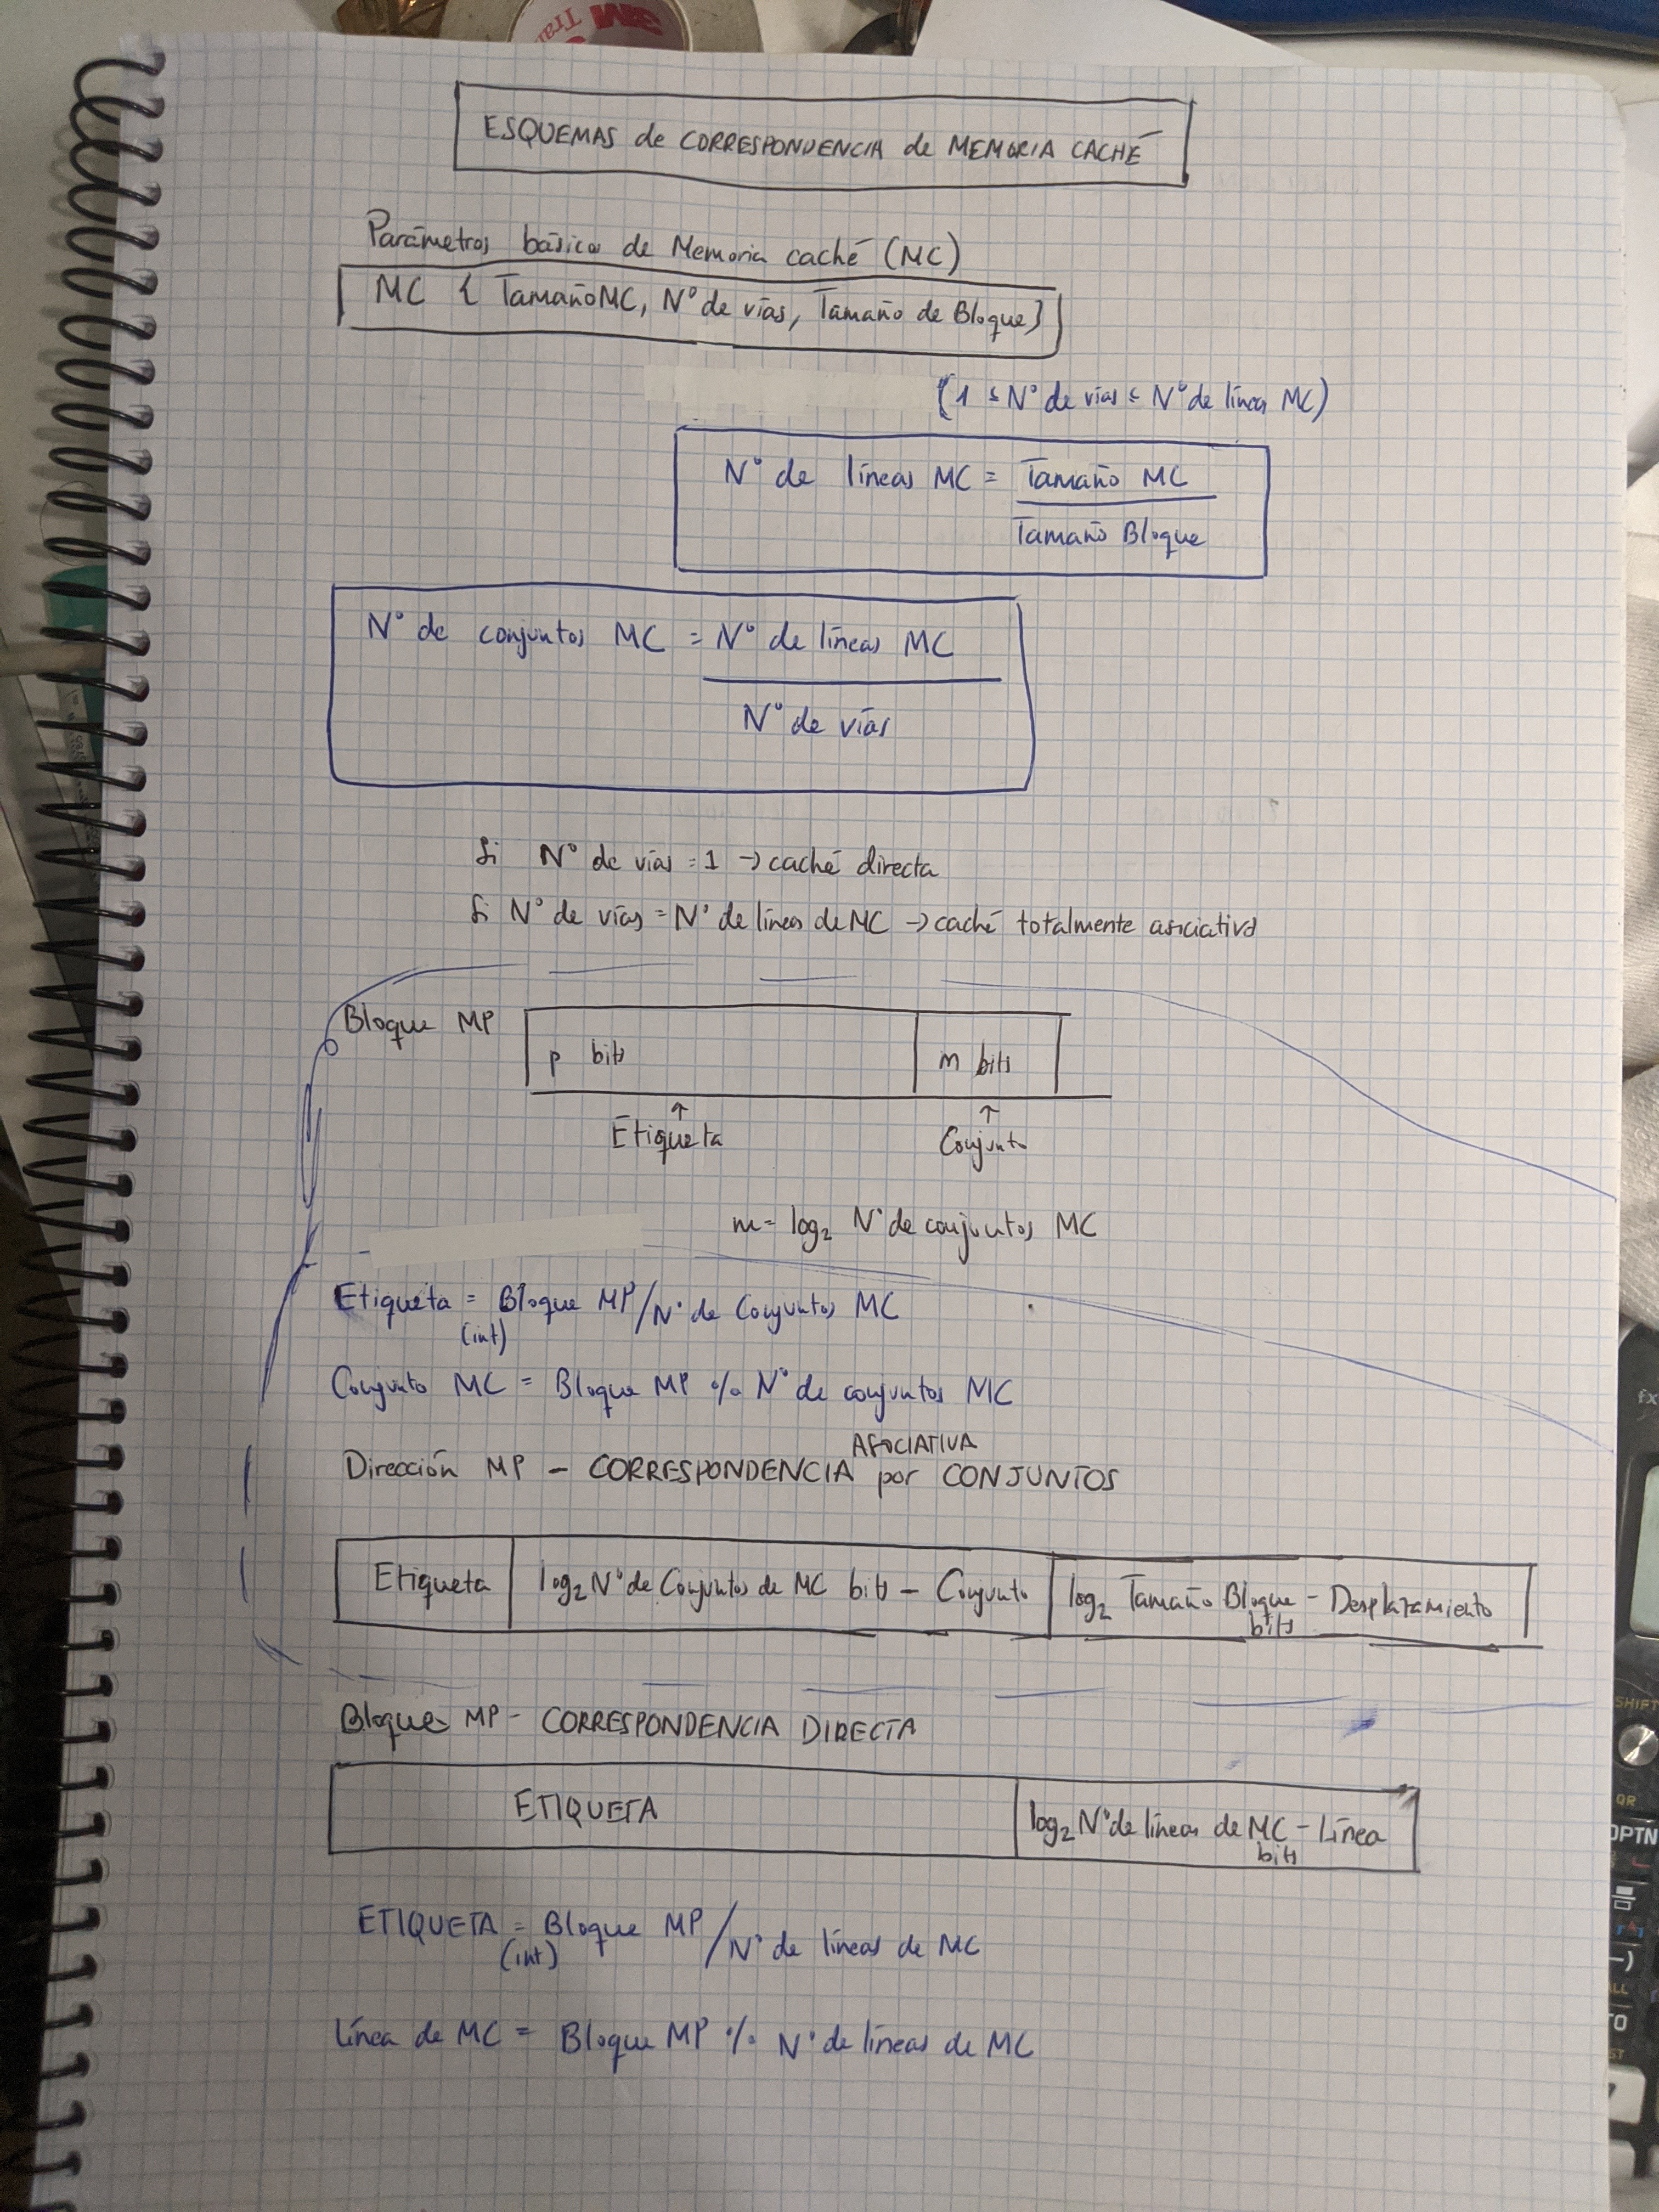 3M
Tra
ESQUEMAS de CORRESPONDENCIA de MEMORIA CACHÉ
Parámetros básicos de Memoria caché (MC)
MC { TamañoMC, Nº de vías, Tamaño de Bloque}
(1 ≤ Nº de vías ≤ Nº de líneas MC)
Nº de líneas MC = Tamaño MC
Tamaño Bloque
Nº de conjuntos MC = Nº de líneas MC
Nº de vías
Si Nº de vías = 1 → caché directa
Si Nº de vías = Nº de líneas de MC → caché totalmente asociativa
Bloque MP
p bits
m bits
↑ ↑
Etiqueta Conjunto
m = log₂ Nº de conjuntos MC
Etiqueta = Bloque MP / Nº de Conjuntos MC
(int)
Conjunto MC = Bloque MP % Nº de conjuntos MC
ASOCIATIVA
Dirección MP - CORRESPONDENCIA por CONJUNTOS
Etiqueta | log₂ Nº de Conjuntos de MC bits - Conjunto | log₂ Tamaño Bloque - Desplazamiento
bits
Bloque MP - CORRESPONDENCIA DIRECTA
ETIQUETA | log₂ Nº de líneas de MC - Línea
bits
ETIQUETA = Bloque MP / Nº de líneas de MC
(int)
Línea de MC = Bloque MP % Nº de líneas de MC
fx
SHIFT
QR
OPTN
(-)